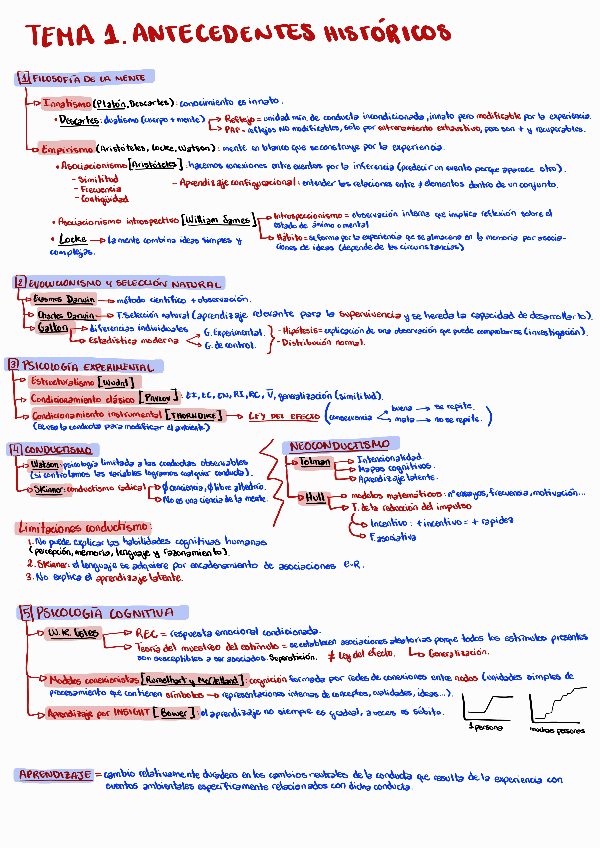 TEMA 1. ANTECEDENTES HISTÓRICOS
1 FILOSOFÍA DE LA MENTE
Innatismo (Platón, Descartes): conocimiento es innato.
• Descartes: dualismo (cuerpo + mente) → Reflejo = unidad mín. de conducta incondicionada, innato pero modificable por la experiencia.
→ PAF = reflejos NO modificables, sólo por entrenamiento exhaustivo, poso son + y recuperables.
Empirismo (Aristóteles, Locke, Watson): mente en blanco que se construye por la experiencia.
• Asociacionismo [Aristóteles]: hacemos conexiones entre eventos por la inferencia (predecir un evento porque aparece otro).
- Similitud
- Frecuencia
- Contigüidad
- Aprendizaje configuracional: entender las relaciones entre ≠ elementos dentro de un conjunto.
• Asociacionismo introspectivo [William James] → Introspeccionismo = observación interna que implica reflexión sobre el
estado de ánimo o mental
→ Hábito = se forma por la experiencia que se almacena en la memoria por asocia-
ciones de ideas (depende de las circunstancias)
• Locke → la mente combina ideas simples y
complejas.
2 EVOLUCIONISMO Y SELECCIÓN NATURAL
Erasmus Darwin → método científico + observación.
Charles Darwin → T. Selección natural (aprendizaje relevante para la supervivencia y se hereda la capacidad de desarrollarlo).
Galton → diferencias individuales
→ Estadística moderna
G. Experimental.
G. de control.
- Hipótesis = explicación de una observación que puede comprobarse (investigación).
- Distribución normal.
3 PSICOLOGÍA EXPERIMENTAL
Estructuralismo [Wundt]
Condicionamiento clásico [PAVLOV]: EI, EC, EN, RI, RC, V, generalización (similitud).
Condicionamiento instrumental [THORNDIKE] → LEY DEL EFECTO (consecuencia
buena → se repite.
mala → no se repite.)
(Se usa la conducta para modificar el ambiente)
4 CONDUCTISMO
Watson: psicología limitada a las conductas observables
(si controlamos las variables logramos cualquier conducta).
Skinner: conductismo radical → Ø conciencia, Ø libre albedrío.
→ No es una ciencia de la mente.
Limitaciones conductismo:
1. No puede explicar las habilidades cognitivas humanas
(percepción, memoria, lenguaje y razonamiento).
2. Skinner: el lenguaje se adquiere por encadenamiento de asociaciones E-R.
3. No explica el aprendizaje latente.
NEOCONDUCTISMO
Tolman → Intencionalidad.
→ Mapas cognitivos.
→ Aprendizaje latente.
Hull → modelos matemáticos: nº ensayos, frecuencia, motivación...
→ T. de la reducción del impulso
→ Incentivo: + incentivo = + rapidez
→ F. asociativa
5 PSICOLOGÍA COGNITIVA
W.K. Estes → REC = respuesta emocional condicionada.
→ Teoría del muestreo del estímulo = se establecen asociaciones aleatorias porque todos los estímulos presentes
son susceptibles a ser asociados. Superstición. ≠ Ley del efecto. → Generalización.
Modelos conexionistas [Rumelhart y McClelland]: cognición formada por redes de conexiones entre nodos (unidades simples de
procesamiento que contienen símbolos → representaciones internas de conceptos, cualidades, ideas...).
Aprendizaje por INSIGHT [Bower]: el aprendizaje no siempre es gradual, a veces es súbito.
1 persona
muchas personas
APRENDIZAJE = cambio relativamente duradero en los cambios neutrales de la conducta que resulta de la experiencia con
eventos ambientales específicamente relacionados con dicha conducta.